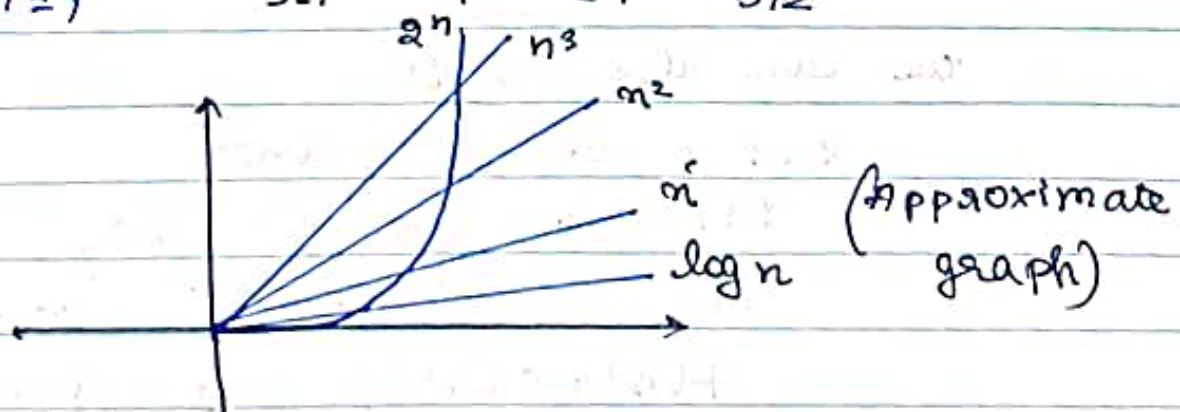 2ⁿ
n³
n²
n
(Approximate
log n graph)